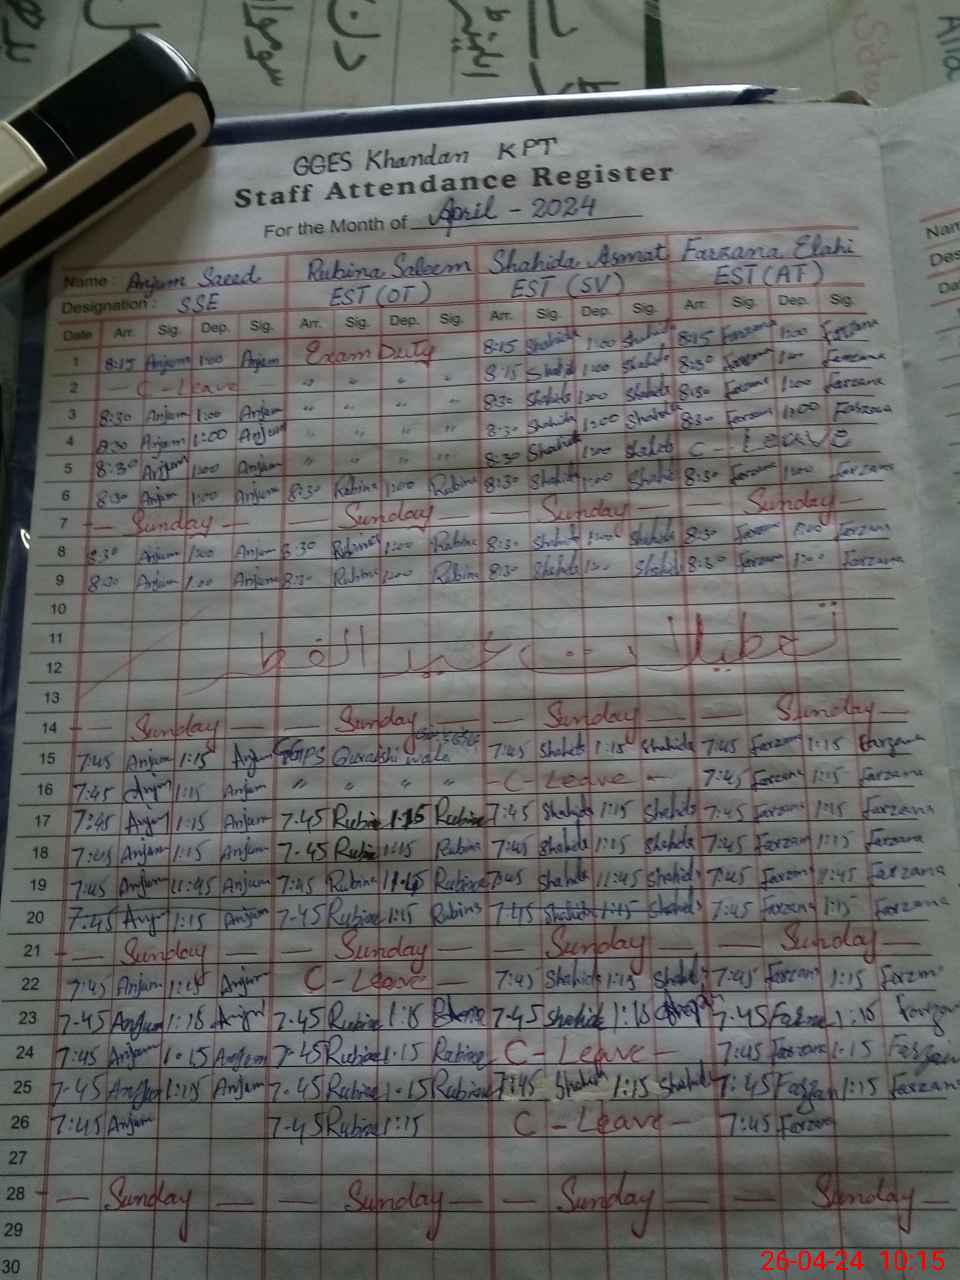 GGES Khandan KPT
Staff Attendance Register
For the Month of April - 2024
Name : Anjum Saeed Rubina Saleem Shahida Asmat Farzana Elahi
Designation : SSE EST (OT) EST (SV) EST (AT)
Date Arr. Sig. Dep. Sig. Arr. Sig. Dep. Sig. Arr. Sig. Dep. Sig. Arr. Sig. Dep. Sig.
1 8:15 Anjum 1:00 Anjum Exam Duty 8:15 Shahida 1:00 Shahida 8:15 Farzana 1:00 Farzana
2 — C - Leave — " " " " 8:15 Shahida 1:00 Shahida 8:30 Farzana 1:00 Farzana
3 8:30 Anjum 1:00 Anjum " " " " 8:30 Shahida 1:00 Shahida 8:30 Farzana 1:00 Farzana
4 8:30 Anjum 1:00 Anjum " " " " 8:30 Shahida 1:00 Shahida 8:30 Farzana 1:00 Farzana
5 8:30 Anjum 1:00 Anjum " " " " 8:30 Shahida 1:00 Shahida C - Leave
6 8:30 Anjum 1:00 Anjum 8:30 Rubina 1:00 Rubina 8:30 Shahida 1:00 Shahida 8:30 Farzana 1:00 Farzana
7 — Sunday — — Sunday — — Sunday — — Sunday —
8 8:30 Anjum 1:00 Anjum 8:30 Rubina 1:00 Rubina 8:30 Shahida 1:00 Shahida 8:30 Farzana 1:00 Farzana
9 8:30 Anjum 1:00 Anjum 8:30 Rubina 1:00 Rubina 8:30 Shahida 1:00 Shahida 8:30 Farzana 1:00 Farzana
10
11 تعطیلات عید الفطر
12
13
14 — Sunday — — Sunday — — Sunday — — Sunday —
15 7:45 Anjum 1:15 Anjum GGPS 7:45 Shahida 1:15 Shahida 7:45 Farzana 1:15 Farzana
16 7:45 Anjum 1:15 Anjum " " " " - C - Leave - 7:45 Farzana 1:15 Farzana
17 7:45 Anjum 1:15 Anjum 7.45 Rubina 1.15 Rubina 7:45 Shahida 1:15 Shahida 7:45 Farzana 1:15 Farzana
18 7:45 Anjum 1:15 Anjum 7.45 Rubina 1:15 Rubina 7:45 Shahida 1:15 Shahida 7:45 Farzana 1:15 Farzana
19 7:45 Anjum 11:45 Anjum 7:45 Rubina 11:45 Rubina 7:45 Shahida 11:45 Shahida 7:45 Farzana 11:45 Farzana
20 7.45 Anjum 1:15 Anjum 7.45 Rubina 1:15 Rubina 7:45 Shahida 1:15 Shahida 7:45 Farzana 1:15 Farzana
21 — Sunday — — Sunday — — Sunday — — Sunday —
22 7:45 Anjum 1:15 Anjum C - Leave — 7:45 Shahida 1:15 Shahida 7:45 Farzana 1:15 Farzana
23 7.45 Anjum 1:15 Anjum 7.45 Rubina 1:15 7.45 Shahida 1:15 7.45 Farzana 1:15 Farzana
24 7:45 Anjum 1.15 Anjum 7.45 Rubina 1.15 Rubina C - Leave - 7:45 Farzana 1.15 Farzana
25 7.45 Anjum 1:15 Anjum 7.45 Rubina 1.15 Rubina 7:45 Shahida 1:15 Shahida 7:45 Farzana 1:15 Farzana
26 7:45 Anjum 7.45 Rubina 1:15 C - Leave - 7:45 Farzana
27
28 — Sunday — — Sunday — — Sunday — — Sunday —
29
30
26-04-24 10:15